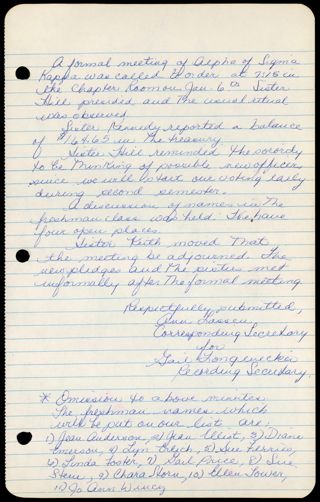 A formal meeting of Alpha of Sigma
Kappa was called to order at 7:15 in
the Chapter Room on Jan 6th. Sister
Hill presided and the usual ritual
was observed.
Sister Kennedy reported a balance
of $164.65 in the treasury.
Sister Hill reminded the sorority
to be thinking of possible new officers
since we will start our voting early
during second semester.
A discussion of names in the
freshman class was held. We have
four open places.
Sister Keith moved that
the meeting be adjourned. The
new pledges and the sisters met
informally after the formal meeting
Respectfully submitted,
Ann
Corresponding Secretary
for
Gail Longenecker
Recording Secretary
* Omission to above minutes:
The freshman names which
will be put on our list are:
1) Jean Anderson, 2) Jean Elliot, 3) Diane
Emerson, 4) Lyn 5) Sue Ferries,
6) Linda Foster, 7) Gail Price, 8) Sue
9) Chara Storn, 10) Ellen Tower,
11) Jo Ann Wincy